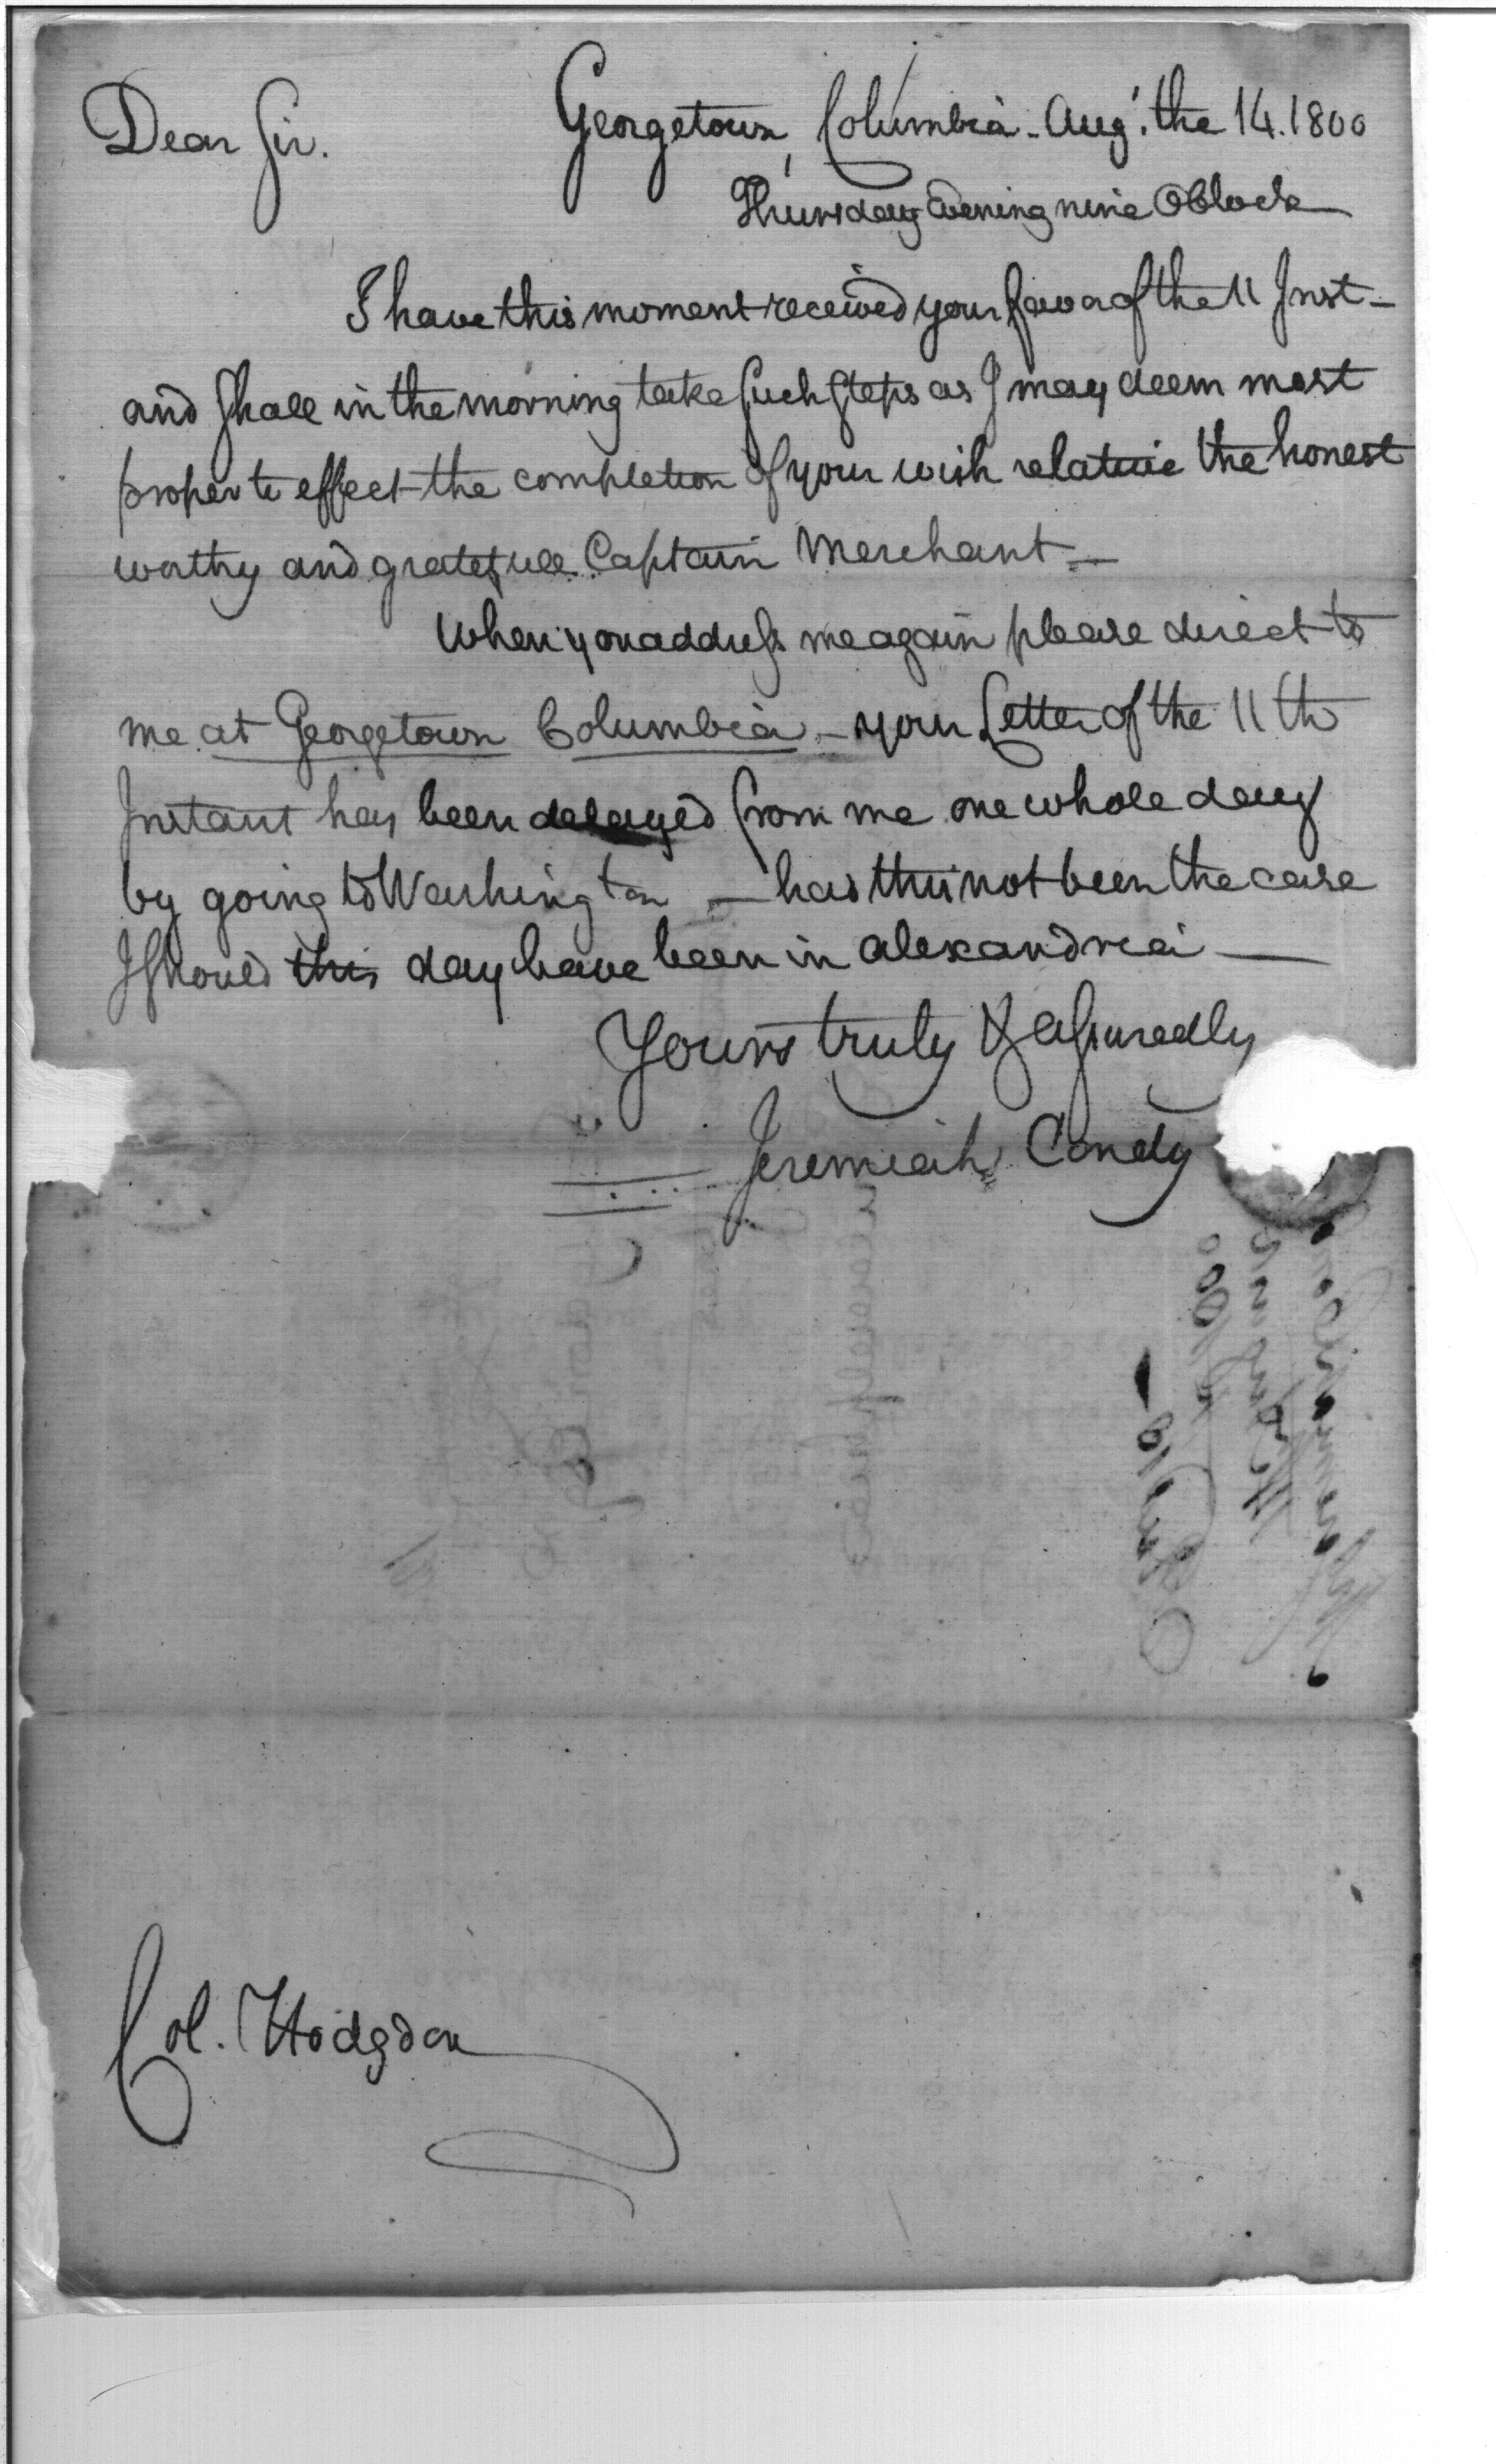 Georgetown, Columbia - Augt. the 14. 1800
Dear Sir.
Thursday Evening nine OClock
I have this moment received your favor of the 11 Inst -
and shall in the morning take such steps as I may deem most
proper to effect the completion of your wish relative the honest
worthy and gratefull Captain Merchant. -
When you address me again please direct to
me at Georgetown Columbia - your Letter of the 11th
Instant has been delayed from me one whole day
by going to Washington - had this not been the case
I should this day have been in alexandria -
Yours truly & assuredly
Jeremiah Condy
Col. Hodgdon